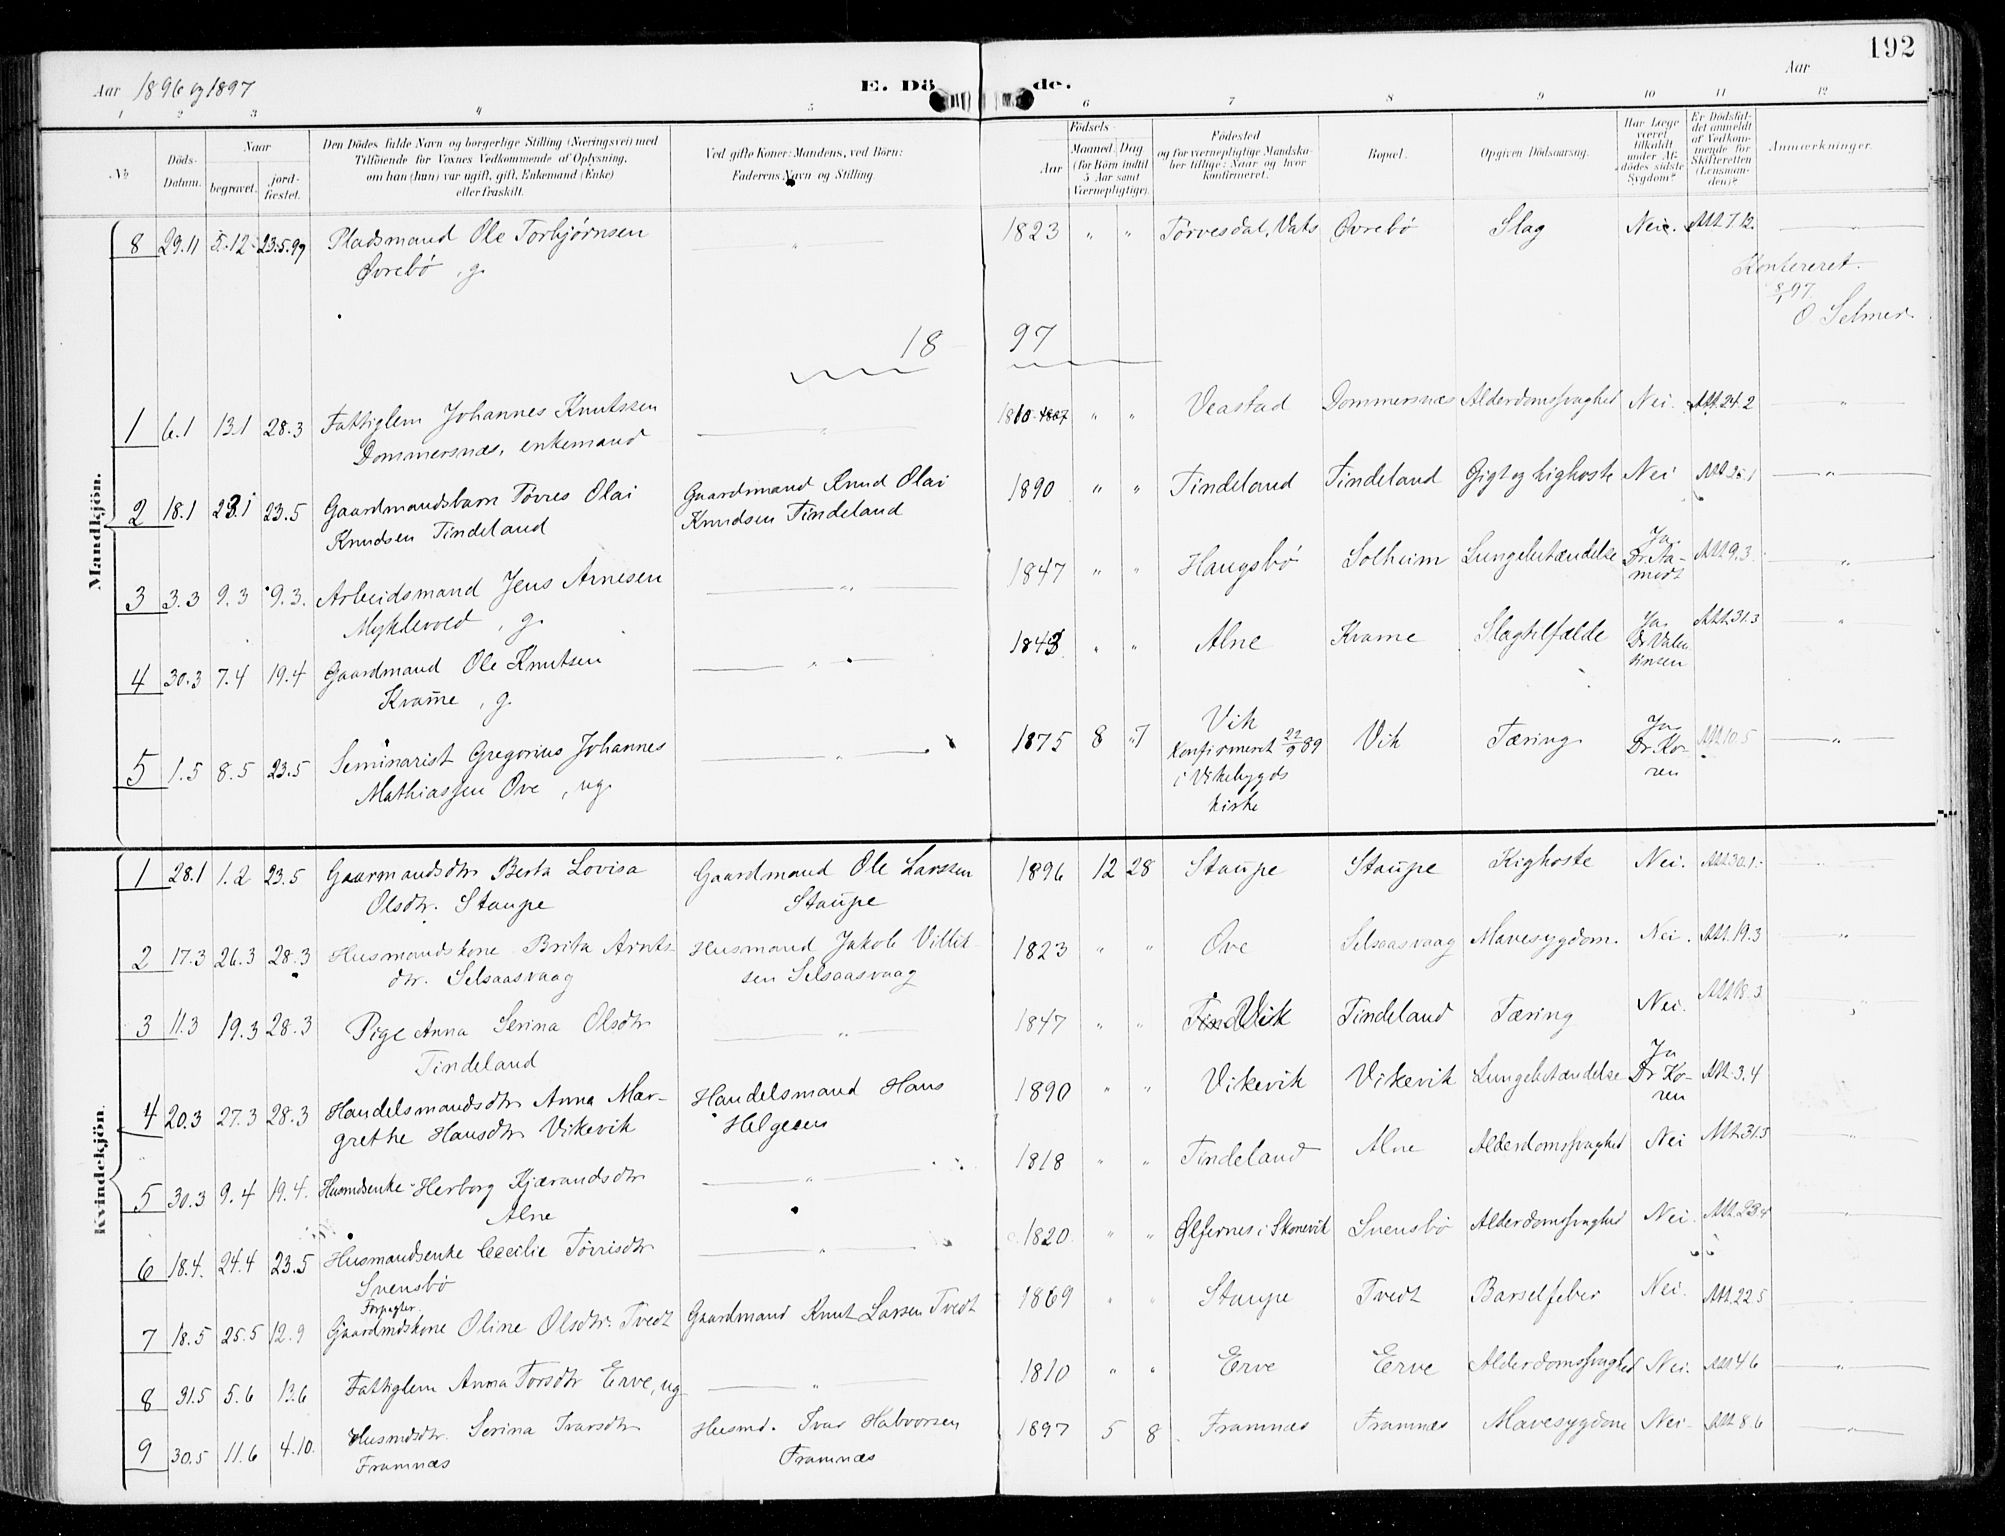 192
Aar 1896 og 1897 E. Dö de. Aar
1 2 3 4 5 6 7 8 9 10 11 12
No Döds-Datum. Naar begravet. jord-fæstet. Den Dödes fulde Navn og borgerlige Stilling (Næringsvei) med Tilföiende for Voxnes Vedkommende af Oplysning, om han (hun) var ugift, gift, Enkemand (Enke) eller fraskilt. Ved gifte Koner: Mandens, ved Börn: Faderens Navn og Stilling. Födsels- Aar Maaned. Dag. (for Börn indtil 5 Aar samt Værnepligtige). Födested og for værnepligtige Mandskaber tillige: Naar og hvor konfirmeret. Bopæl. Opgiven Dödsaarsag. Har Læge været tilkaldt under Afdödes sidste Sygdom? Er Dödsfaldet anmeldt af Vedkommende for Skifteretten (Lensmanden)? Anmærkninger.
Mandkjön.
8 29.11 5.12 23.5.97 Pladsmand Ole Torbjørnsen " 1823 " " Tørvesdal, Vats Øvrebø Slag Nei. Att 7.12.
Øvrebø, g.
Konfereret.
8/1 97
O. Selmer
18 97
1 6.1 13.1 28.3 Fattiglem Johannes Knutssen " 1810 1807 " " Veastad Dommersnæs Alderdomssvaghed Nei. Att 24.2 "
Dommersnæs, enkemand
2 18.1 23.1 23.5 Gaardmandsbarn Tørres Olai Gaardmand Knud Olai 1890 " " Tindeland Tindeland Gigt og kighoste Nei Att 25.1 "
Knudsen Tindeland Knudsen Tindeland
3 3.3 9.3 9.3. Arbeidsmand Jens Arnesen " 1847 " " Haugsbø Solheim Lungebetændelse Ja. Dr. Aamodt Att 9.3. "
Myklevold, g.
4 30.3 7.4 19.4 Gaardmand Ole Knutsen " 1843 " " Alne Kvame Slagtilfælde Ja. Dr. Valentinsen Att 31.3 "
Kvame, g.
5 1.5 8.5 23.5 Seminarist Gregorius Johannes " 1875 8 7 Vik Vik Tæring Ja. Dr. Koren Att 10.5 "
Mathiassen Ove, ug. Konfirmeret 22/9 89
i Vikebygds
kirke
Kvindekjön.
1 28.1 1.2 23.5 Gaarmandsdtr Berta Lovisa Gaardmand Ole Larssen 1896 12 28 Staupe Staupe Kighoste Nei. Att 30.1.
Olsdtr. Staupe Staupe
2 17.3 26.3 28.3 Husmandskone Brita Arnts- Husmand Jakob Villik- 1823 " " Ove Selsaasvaag Mavesygdom. Nei. Att 19.3 "
dtr. Selsaasvaag sen Selsaasvaag
3 11.3 19.3 28.3 Pige Anna Serina Olsdtr " 1847 " " Tind Vik Tindeland Tæring Nei. Att 18.3 "
Tindeland
4 20.3 27.3 28.3 Handelsmandsdtr Anna Mar- Handelsmand Hans 1890 " " Vikevik Vikevik Lungebetændelse Ja Dr Koren Att 3.4
grethe Hansdtr Vikevik Helgesen
5 30.3 9.4 19.4. Husmdsenke Herborg Kjærandsdtr " 1818 " " Tindeland Alne Alderdomssvaghed Nei Att 31.3 "
Alne
6 18.4. 24.4 23.5 Husmandsenke Cecilie Tørrisdtr " 1820 " " Ølfernes i Skonevik Svensbø Alderdomssvaghed Nei. Att 23.4 "
Svensbø
Forpagter.
7 18.5 25.5 12.9 Gjaardmdskone Oline Olsdtr. Tvedt Gaardmand Knut Larsen Tvedt 1869 " " Staupe Tvedt Barselfeber Nei. Att 22.5
8 31.5 5.6 13.6 Fattiglem Anna Torsdtr Erve, ug " 1810 " " Erve Erve Alderdomssvaghed Nei. Att 4.6 "
9 30.5 11.6 4.10. Husmdsdtr. Serina Ivarsdtr Husmd. Ivar Halvorsen 1897 5 8 Framnæs Framnæs Mavesygdom Nei Att 8.6 "
Framnæs Framnæs